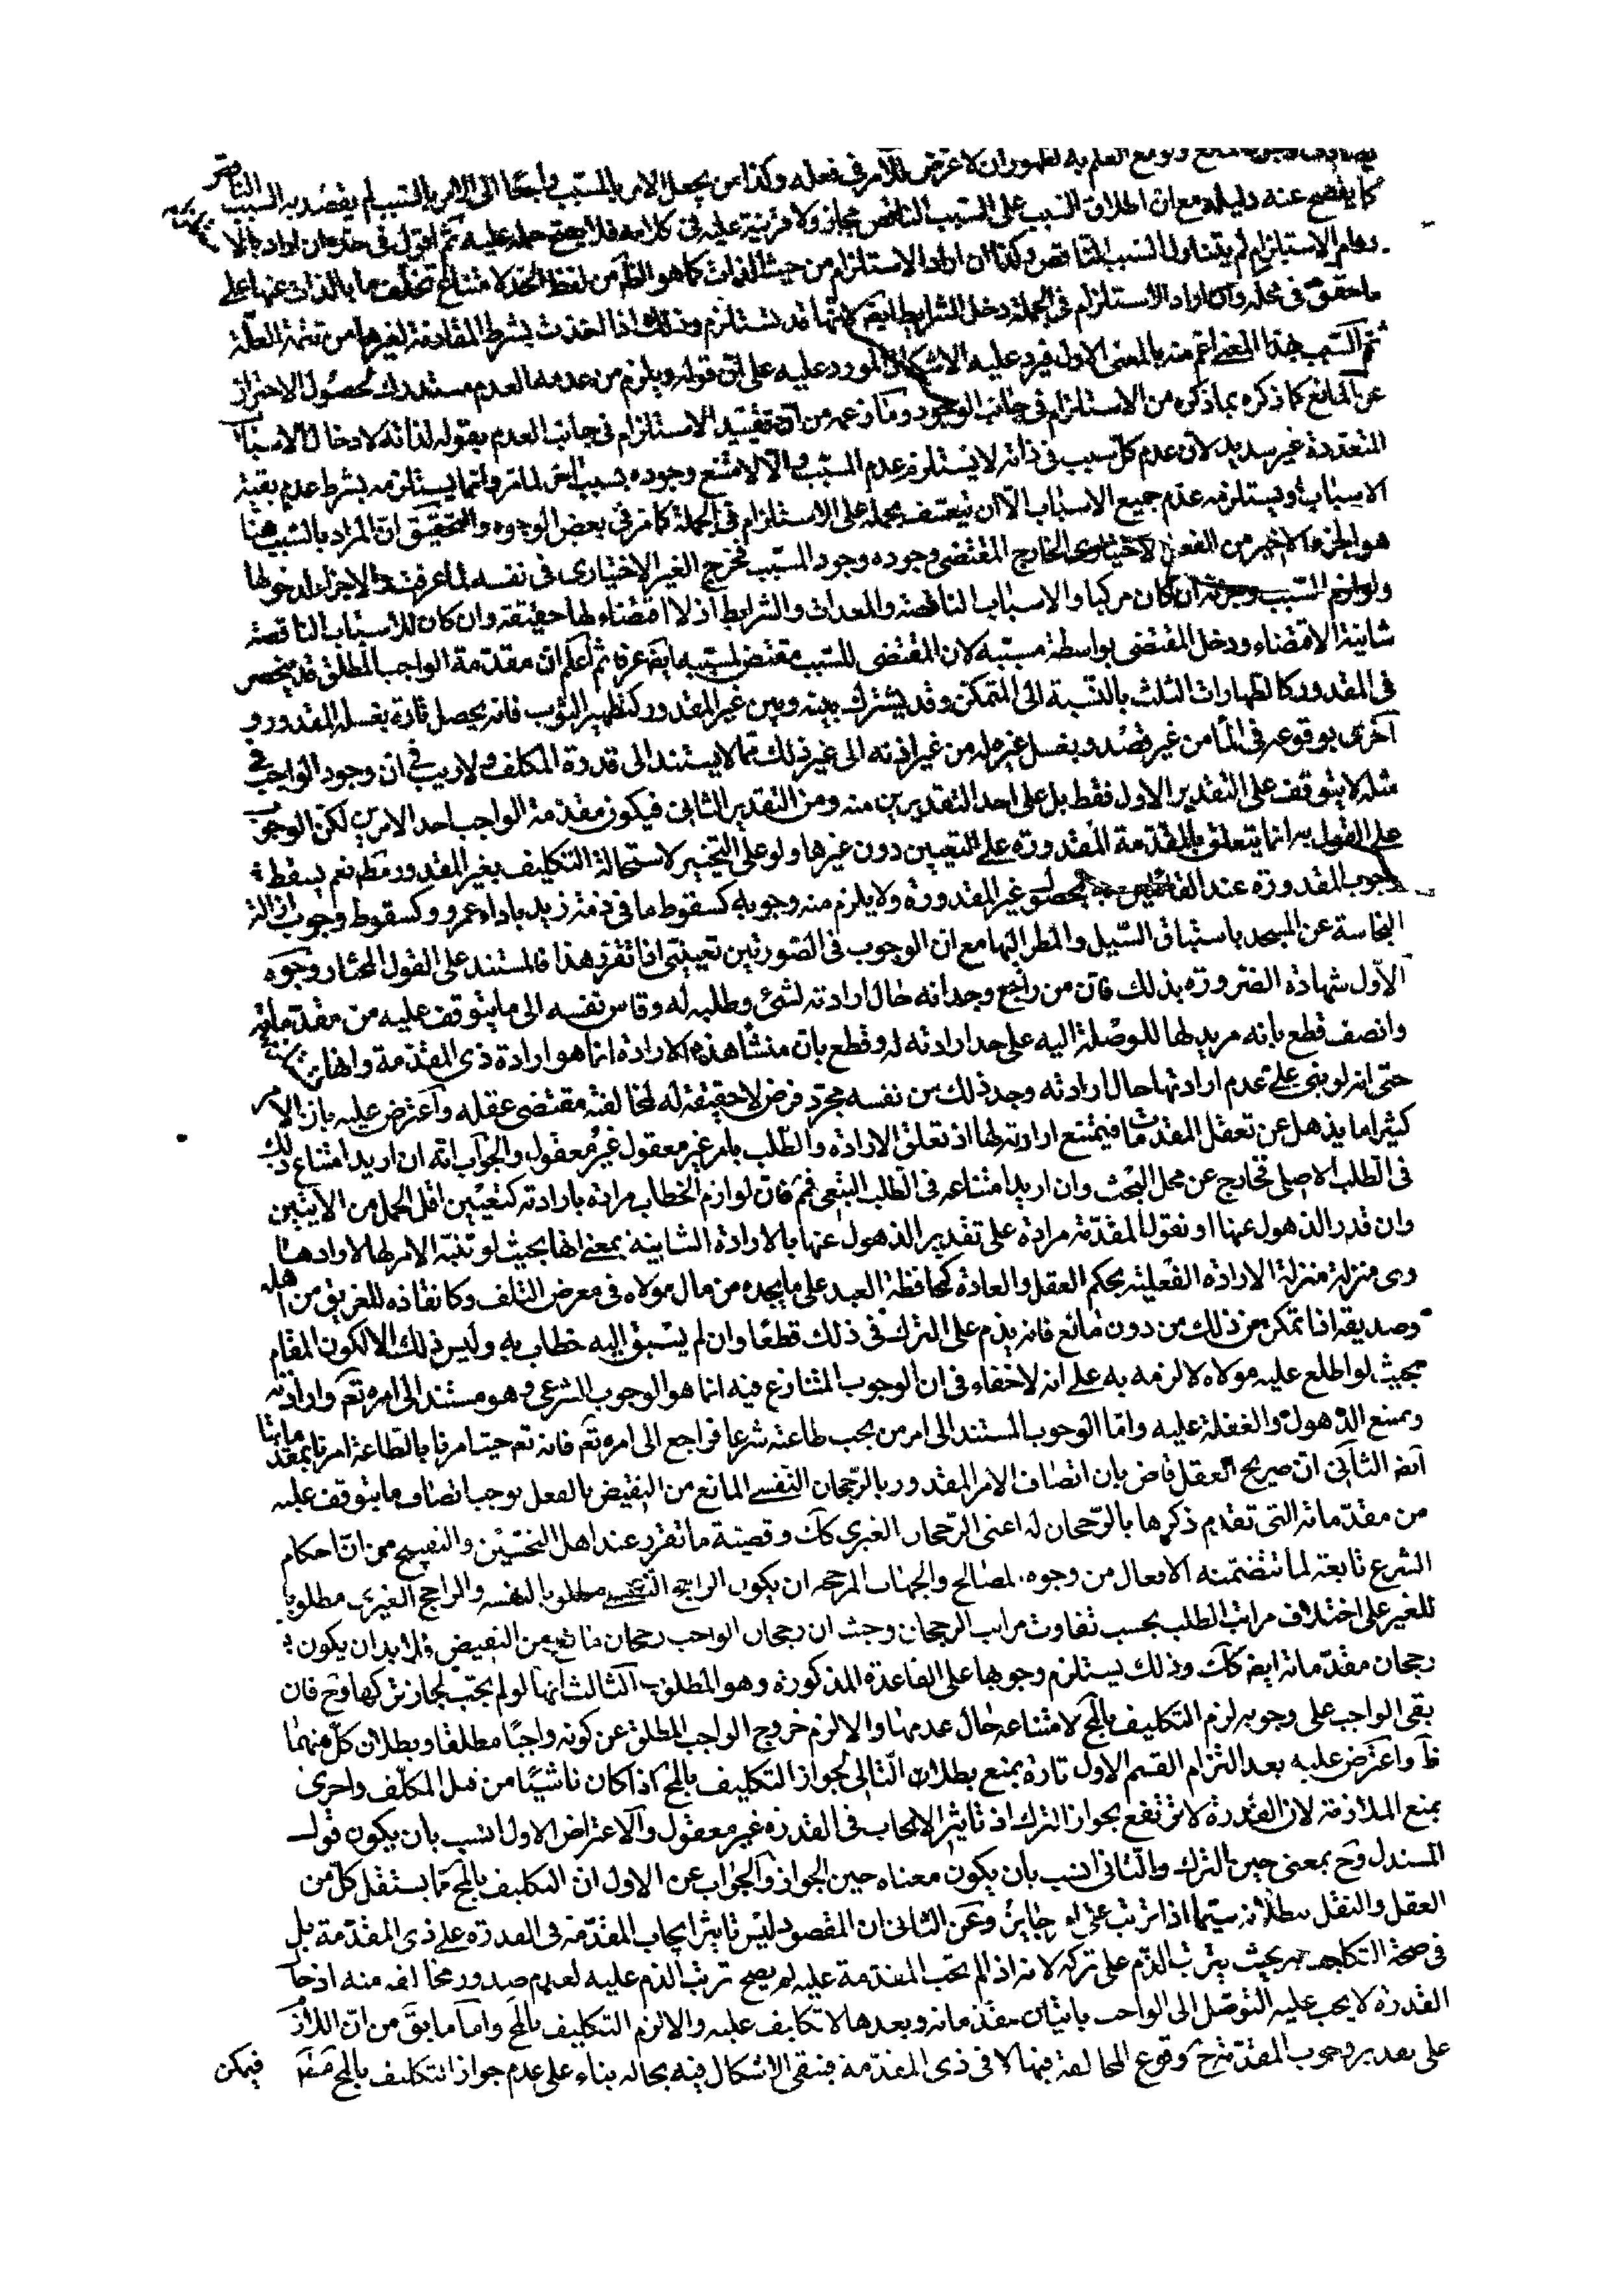 ولو مع العلم به لظهور ان لا غرض للآمر فى فعله وكذا من يجعل الامر بالمسبب راجعا الى الامر بالسبب لم يقصد به السبب الناقص
كما يفصح عنه دليله مع ان اطلاق السبب على السبب الناقص مجاز ولا قرينة عليه فى كلامه فلا يصح حمله عليه ثم اقول فى حده ان اراد بالا
دوام الاستلزام لم يتناول السبب الناقص وكذا ان اراد الاستلزام من حيث الذات كما هو الظ من لفظ الحد لامتناع تخلف ما بالذات عنها على
ما حقق فى محله وان اراد الاستلزام فى الجملة دخل الشرايط ايضا لانها قد تستلزم وذلك اذا اخذت بشرط المقارنة لغيرها من تتمة العلة
ثم السبب بهذا المعنى اعم منه بالمعنى الاول فيرد عليه الاشكال المورد عليه على ان قوله ويلزم من عدمه العدم مستدرك لحصول الاحتراز
عن المانع كما ذكره بما ذكره من الاستلزام فى جانب الوجود وما زعمه من ان تقييد الاستلزام فى جانب العدم بقوله لذاته لادخال الاسباب
المتعددة غير سديد لان عدم كل سبب فى ذاته لا يستلزم عدم المسبب والا لامتنع وجوده بسبب اخر لما مر وانما يستلزمه بشرط عدم بقية
الاسباب ويستلزمه عدم جميع الاسباب الا ان يتعسف بحمله على الاستلزام فى الجملة كما مر فى بعض الوجوه والتحقيق ان المراد بالسبب هنا
هو الجزء الاخير من الفعل الاختيارى الخارج المقتضى وجوده وجود المسبب فخرج الغير الاختيارى فى نفسه لما عرفت والاجزاء لدخولها
ولوازم السبب وجزئه ان كان مركبا والاسباب الناقصة والمعدات والشرايط اذ لا اقتضاء لها حقيقة وان كان للاسباب الناقصة
شانية الاقتضاء ودخل المقتضى بواسطة مسببه لان المقتضى للسبب مقتض لمسببه ايضا عرفا ثم اعلم ان مقدمة الواجب المطلق قد ينحصر
فى المقدور كالطهارات الثلث بالنسبة الى المتمكن وقد يشترك بينه وبين غير المقدور كتطهير الثوب فانه يحصل تارة بغسله المقدور و
اخرى بوقوعه فى الماء من غير قصد وبغسل غيره له من غير اذنه الى غير ذلك مما لا يستند الى قدرة المكلف ولا ريب فى ان وجود الواجب فى
مثله لا يتوقف على التقدير الاول فقط بل على احد التقديرين منه ومن التقدير الثانى فيكون مقدمة الواجب احد الامرين لكن الوجوب
على القول به انما يتعلق بالمقدمة المقدورة على التعيين دون غيرها ولو على التخيير لاستحالة التكليف بغير المقدور مطلقا نعم يسقط
وجوب المقدورة عند القائلين به بحصول غير المقدورة ولا يلزم منه وجوبه كسقوط ما فى ذمة زيد باداء عمرو وكسقوط وجوب ازالة
النجاسة عن المسجد باستباق السيل والمطر اليها مع ان الوجوب فى الصورتين تعيينى اذا تقرر هذا فالمستند على القول المختار وجوه
الاول شهادة الضرورة بذلك فان من راجع وجدانه حال ارادته لشئ وطلبه له وقاس نفسه الى ما يتوقف عليه من مقدماته
وانصف قطع بانه مريد لها للوصلة اليه على حد ارادته له وقطع بان منشأ هذه الارادة انما هو ارادة ذى المقدمة وانها من
حتى انه لو بنى على عدم ارادتها حال ارادته وجد ذلك من نفسه مجرد فرض لا حقيقة له لمخالفته مقتضى عقله واعترض عليه بان الامر
كثيرا ما يذهل عن تعقل المقدمات فيمتنع ارادته لها اذ تعلق الارادة والطلب بامر غير معقول غير معقول والجواب انه ان اريد امتناع ذلك
فى الطلب الاصلى فخارج عن محل البحث وان اريد امتناعه فى الطلب التبعى فمم فان لوازم الخطاب مرادة بارادته كتعيين اقل الحمل من الايتين
وان قدر الذهول عنها او نقول المقدمة مرادة على تقدير الذهول عنها بالارادة الشانية بمعنى انها بحيث لو تنبه الامر لها لارادها
وهى منزلة منزلة الارادة الفعلية بحكم العقل والعادة كمحافظة العبد على ما يجده من مال مولاه فى معرض التلف وكانقاذه للغريق من اهله
وصديقه اذا تمكن من ذلك من دون مانع فانه يذم على الترك فى ذلك قطعا وان لم يسبق اليه خطاب به وليس ذلك الا لكون المقام
بحيث لو اطلع عليه مولاه لالزمه به على انه لا خفاء فى ان الوجوب المتنازع فيه انما هو الوجوب الشرعى وهو مستند الى امره تع وارادته
ويمتنع الذهول والغفلة عليه واما الوجوب المستند الى امر من يجب طاعته شرعا فراجع الى امره تع فانه تع حيث امرنا بالطاعة امرنا بمقدماتها
ايضا الثانى ان صريح العقل قاض بان اتصاف الامر المقدور بالرجحان النفسى المانع من النقيض بالفعل يوجب اتصاف ما يتوقف عليه
من مقدماته التى تقدم ذكرها بالرجحان له اعنى الرجحان الغيرى كك وقضية ما تقرر عند اهل التحسين والتقبيح من ان احكام
الشرع تابعة لما تتضمنه الافعال من وجوه المصالح والجهات المرجحة ان يكون الراجح النفسى مطلوبا لنفسه والراجح الغيرى مطلوبا
للغير على اختلاف مراتب الطلب بحسب تفاوت مراتب الرجحان وحيث ان رجحان الواجب رجحان مانع من النقيض فلابد ان يكون
رجحان مقدماته ايضا كك وذلك يستلزم وجوبها على القاعدة المذكورة وهو المطلوب الثالث انها لو لم يجب لجاز تركها وح فان
بقى الواجب على وجوبه لزم التكليف بالمح لامتناعه حال عدمها والا لزم خروج الواجب المطلق عن كونه واجبا مطلقا وبطلان كل منهما
ظ واعترض عليه بعد التزام القسم الاول تارة بمنع بطلان التالى لجواز التكليف بالمح اذا كان ناشيئا من قبل المكلف واخرى
بمنع الملازمة لان القدرة لا ترتفع بجواز الترك اذ تاثير الايجاب فى القدرة غير معقول والاعتراض الاول انسب بان يكون قول
المستدل وح بمعنى حين الترك والثانى انسب بان يكون معناه حين الجواز والجواب عن الاول ان التكليف بالمح مما يستقل كل من
العقل والنقل ببطلانه سيما اذا ترتب عليه جايز وعن الثانى ان المقصود ليس تاثير ايجاب المقدمة فى القدرة على ذى المقدمة بل
فى صحة التكليف به بحيث يترتب الذم على تركه لانه اذا لم يجب المقدمة عليه لم يصح ترتب الذم عليه لعدم صدور مخالفة منه اذ حال
القدرة لا يجب عليه التوصل الى الواجب باتيان مقدماته وبعدها لا تكليف عليه والا لزم التكليف بالمح واما ما يق من ان اللازم
على تقدير وجوب المقدمة ح وقوع المخالفة فيها لا فى ذى المقدمة فيبقى الاشكال فيه بحاله بناء على عدم جواز التكليف بالمح مط فيمكن